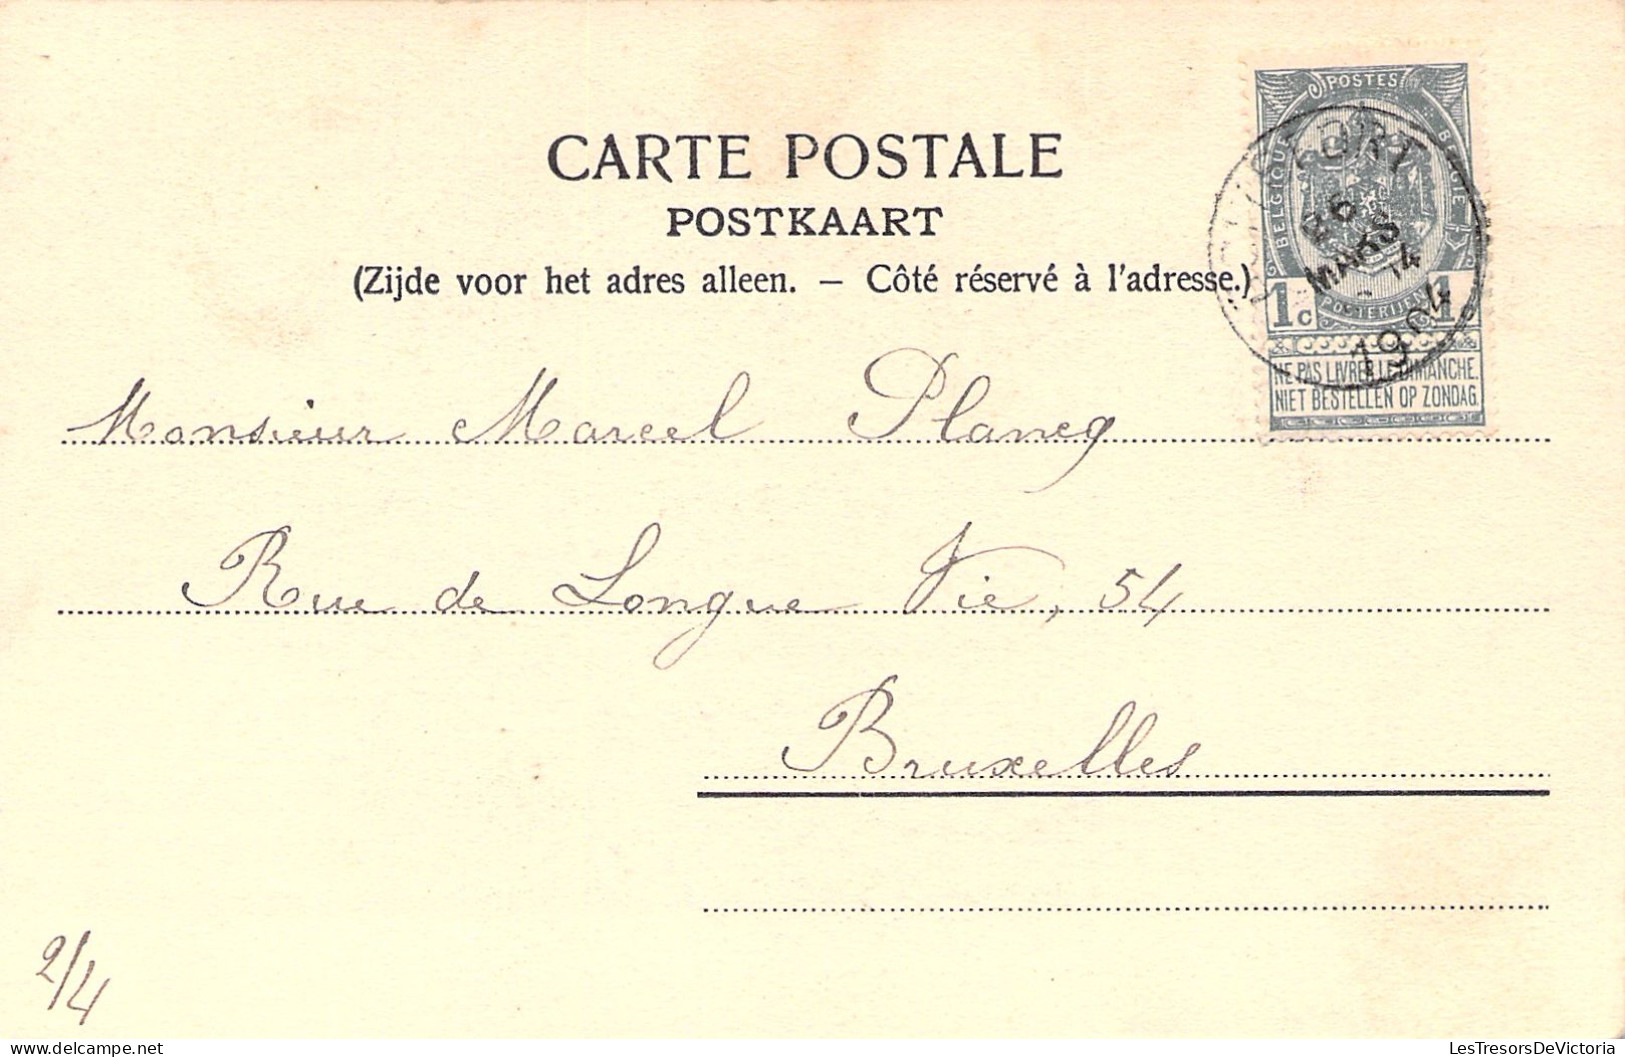 CARTE POSTALE
POSTKAART
(Zijde voor het adres alleen. – Côté réservé à l'adresse.)
POSTES
BELGIQUE
BELGIË
26
MARS
14
1904
1c
POSTERIJEN
1
NE PAS LIVRER LE DIMANCHE.
NIET BESTELLEN OP ZONDAG.
Monsieur Marcel Plancq
Rue de Longue Vie, 54
Bruxelles
2/4
LesTresorsDeVictoria